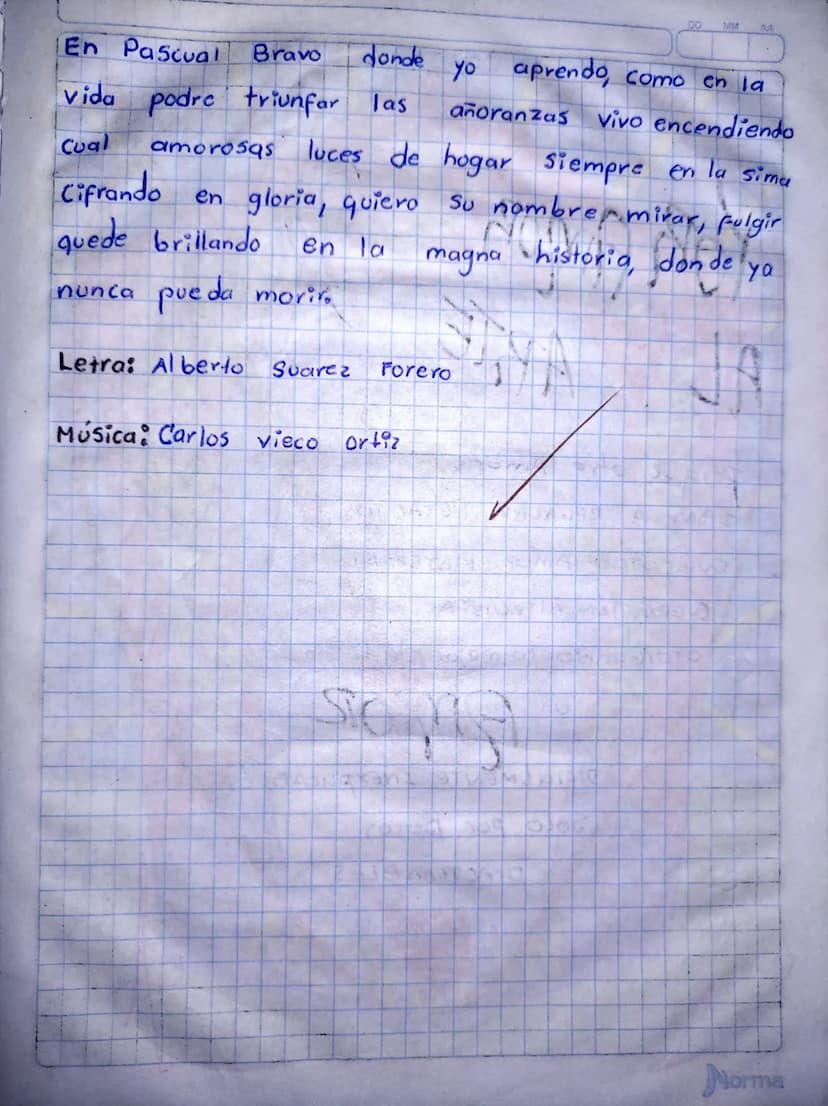 DD MM AA
En Pascual Bravo donde yo aprendo, como en la
vida podre triunfar las añoranzas vivo encendiendo
cual amorosas luces de hogar siempre en la sima
Cifrando en gloria, quiero su nombre mirar, fulgir
quede brillando en la magna historia, donde ya
nunca pueda morir.
Letra: Alberto Suarez Forero
Música: Carlos vieco ortiz
Norma